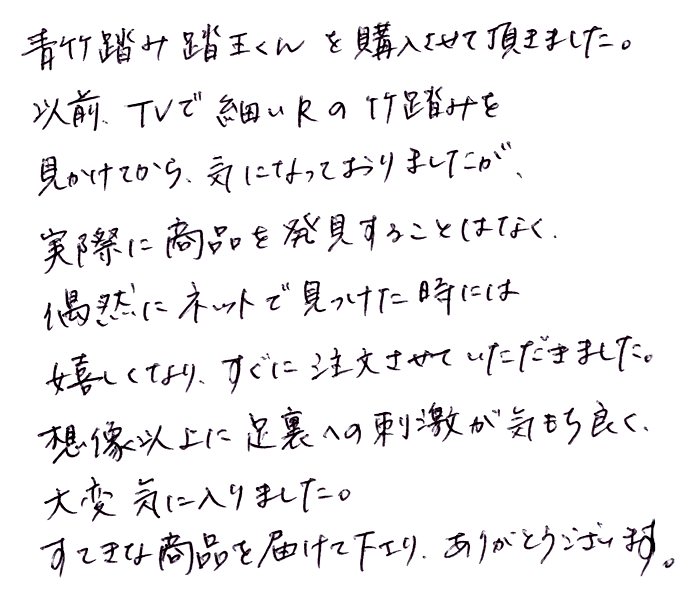 青竹踏み踏王くんを購入させて頂きました。
以前、TVで細いRの竹踏みを
見かけてから、気になっておりましたが、
実際に商品を発見することはなく、
偶然にネットで見つけた時には
嬉しくなり、すぐに注文させていただきました。
想像以上に足裏への刺激が気もち良く、
大変気に入りました。
すてきな商品を届けて下さり、ありがとうございます。